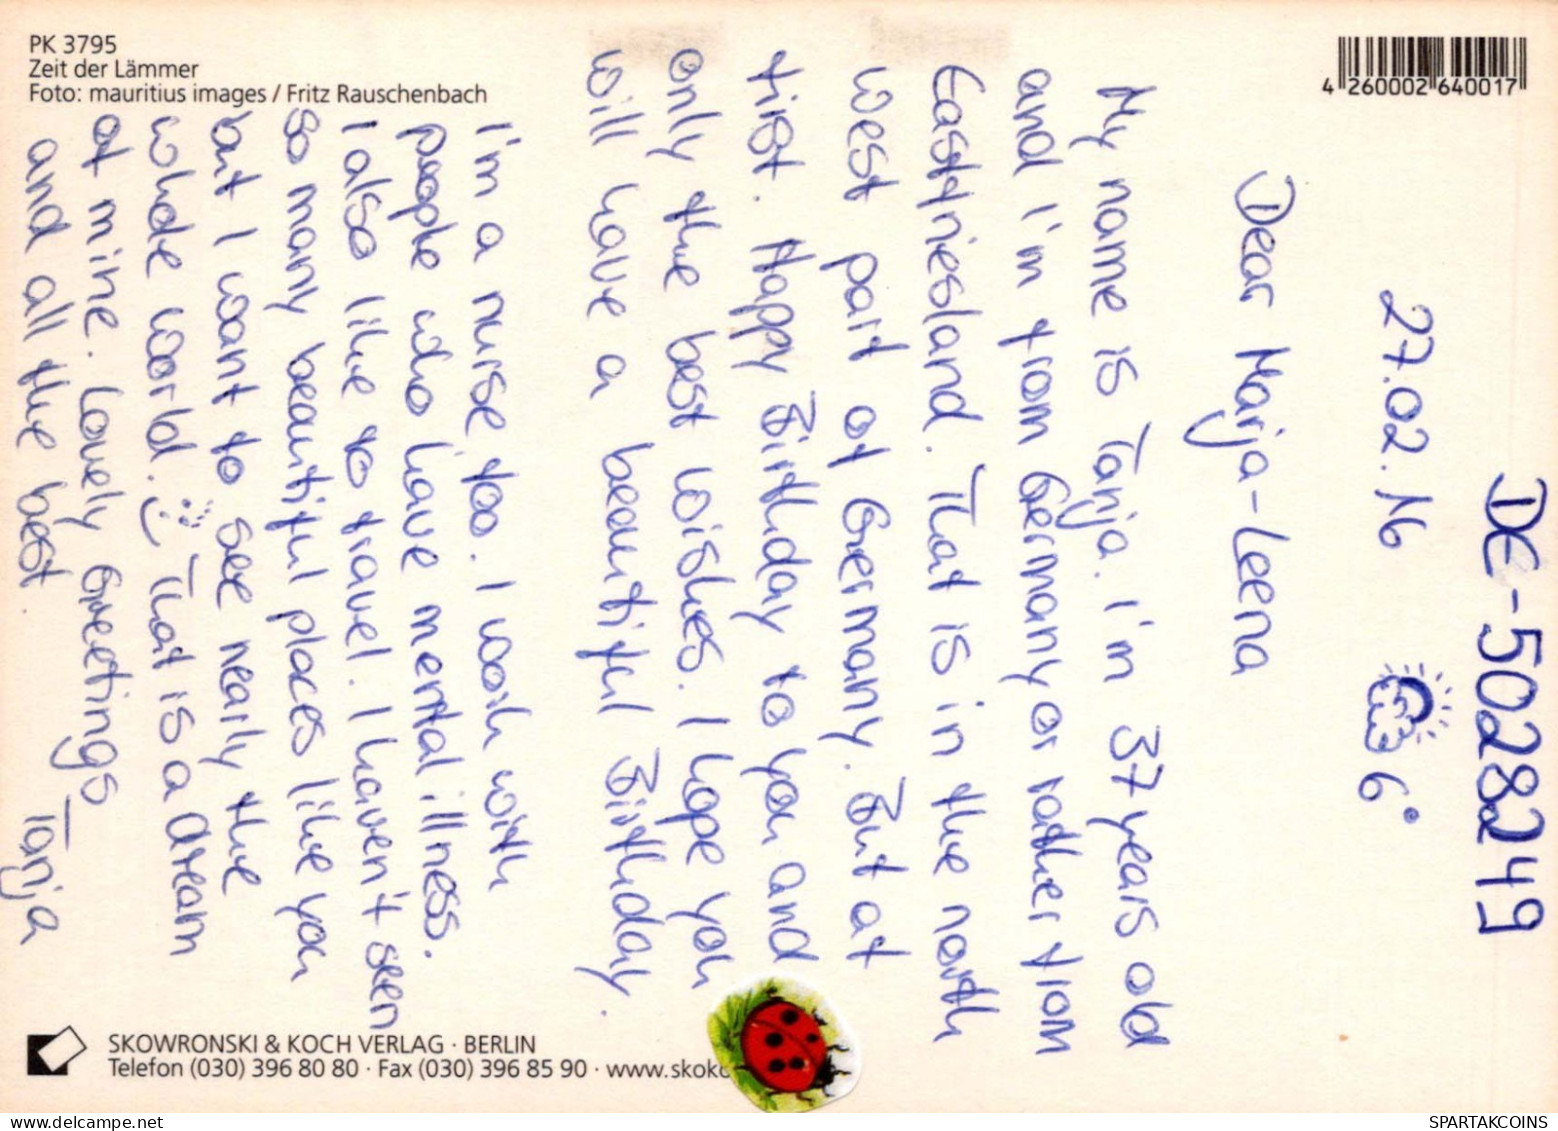 PK 3795
Zeit der Lämmer
Foto: mauritius images / Fritz Rauschenbach
4 260002 640017
DE-5028249
27.02.16 6°
Dear Marja-Leena
My name is Tanja. I'm 37 years old
and I'm from Germany or rather from
Eastfriesland. That is in the north
west part of Germany. But at
first. Happy Birthday to you and
only the best wishes. I hope you
will have a beautiful Birthday.
I'm a nurse, too. I work with
people who have mental illness.
I also like to travel. I haven't seen
so many beautiful places like you
but I want to see nearly the
whole world. That is a dream
of mine. Lovely Greetings
and all the best. Tanja
SKOWRONSKI & KOCH VERLAG · BERLIN
Telefon (030) 396 80 80 · Fax (030) 396 85 90 · www.skoko
SPARTAKCOINS